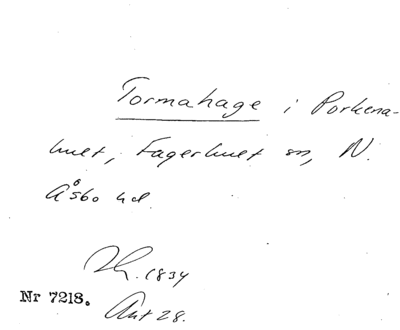 Tormahage i Porkena-
hult, Fagerhult sn, N.
Åsbo hd.
Zh. 1834
Nr 7218. Akt 28.